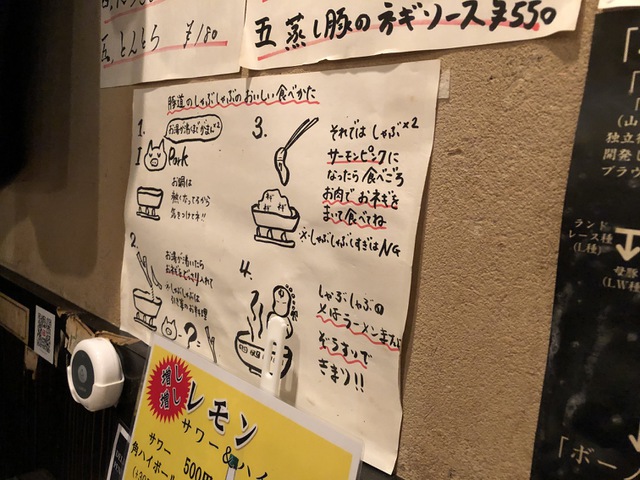 五、とんとろ ¥180
五 蒸し豚のネギソース ¥550
豚道のしゃぶしゃぶのおいしい食べかた
1.
お湯が沸くまでがまん×2
I Pork
お鍋は
熱くなってるから
気をつけてネ!!
2.
お湯が沸いたら
お葱をどっさり入れて
※しゃぶしゃぶは
引き算のお料理
- ? =
3.
それではしゃぶ×2
サーモンピンクに
なったら食べごろ
お肉でおネギを
まいて食べてね
※しゃぶしゃぶしすぎはNG
4.
しゃぶしゃぶの
〆はラーメンまたは
ぞうすいで
きまり!!
増し
増し
レモン
サワー&ハイ
サワー
角ハイボール
500円
(山
独立
開発
ブラウ
ランド
レース種
(L種)
(LW種
「ボー